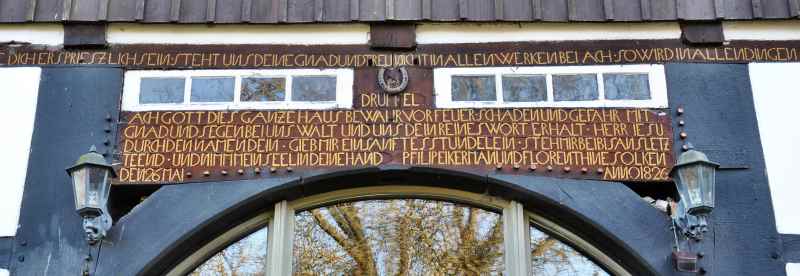 DICH ERSPRIESZLICH SEIN · STEHT UNS DEINE GNAD UND TREU NICHT IN ALLEN WERKEN BEI ACH · SO WIRD IN ALLEN DINGEN
DRUPPEL
ACH GOTT DIES GANZE HAUS BEWAHR VOR FEUERSCHADEN UND GEFAHR MIT
GNAD UND SEGEN BEI UNS WALT UND UNS DEIN REINES WORT ERHALT · HERR JESU
DURCH DEN NAMEN DEIN · GIEB MIR EIN SANFTES STUNDELEIN · STEH MIR BEI BIS AN S LETZ
TE END · UND NIMM EIN SEEL IN DEINE HAND PHILIP EIKERMAN UND FLORENTHINE SOLKEN
DEN 26 MAI ANNO 1826